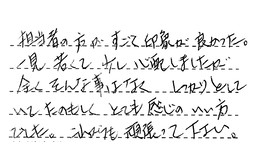 担当者の方がすごく印象が良かった。
一見若くて少し心配しましたが
全くそんな事はなく しっかりとして
いてたのもしく とても感じのいい方
でした。これからも頑張って下さい。